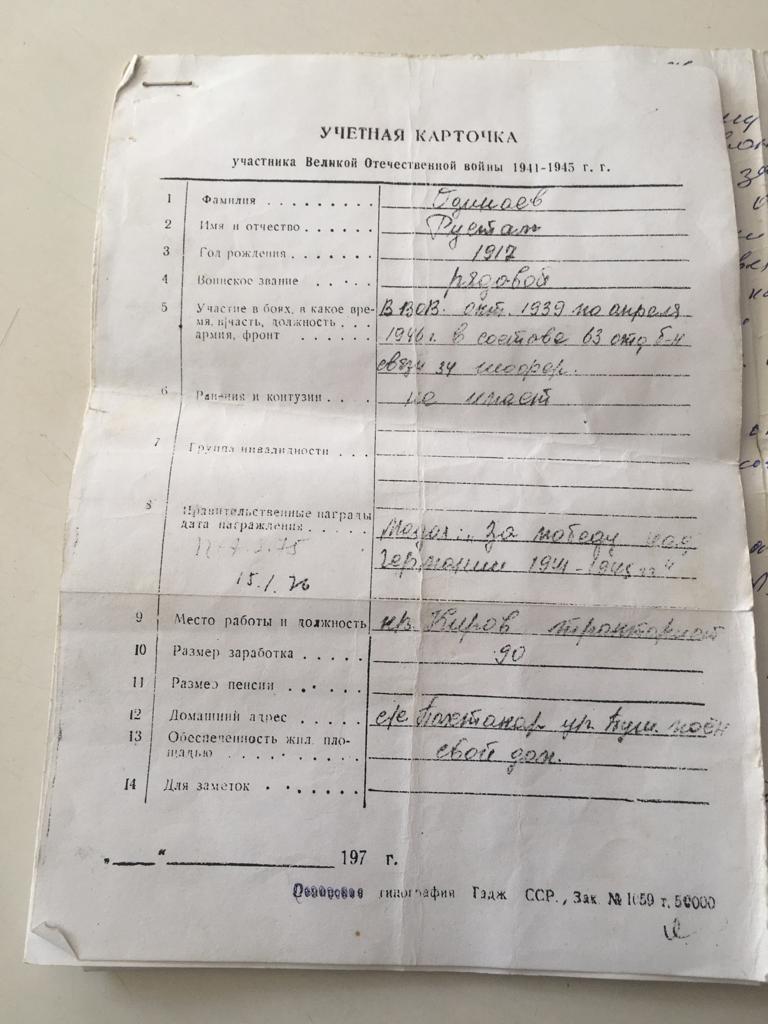 УЧЕТНАЯ КАРТОЧКА
участника Великой Отечественной войны 1941-1945 г. г.
1 Фамилия . . . . . . . . . Одинаев
2 Имя и отчество . . . . . Рустам
3 Год рождения . . . . . . 1917
4 Воинское звание . . . . . рядовой
5 Участие в боях, в какое вре- В ВОВ. окт. 1939 по апреля
мя, в/часть, должность . . . 1946 г. в состова 63 отд б-н
армия, фронт . . . . . . связи шофер.
6 Ранения и контузии . . . не имает
7 Группа инвалидности . . .
8 Правительственные награды
дата награждения . . . . . Медал: "За победу над
15.1.76 Германии 1941-1945 гг"
9 Место работы и должность Киров
10 Размер заработка . . . . . 90
11 Размер пенсии . . . . .
12 Домашний адрес . . . . . с/с Пахтакор
13 Обеспеченность жил. пло- свой дом.
щадью . . . . . . . . .
14 Для заметок . . . . . . .
„___“ ______________ 197 г.
типография Тадж ССР., Зак. № 1659 т. 50000